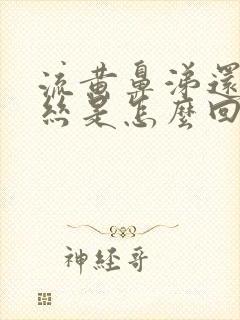 流黃鼻涕還
絲是怎麼回
神經哥